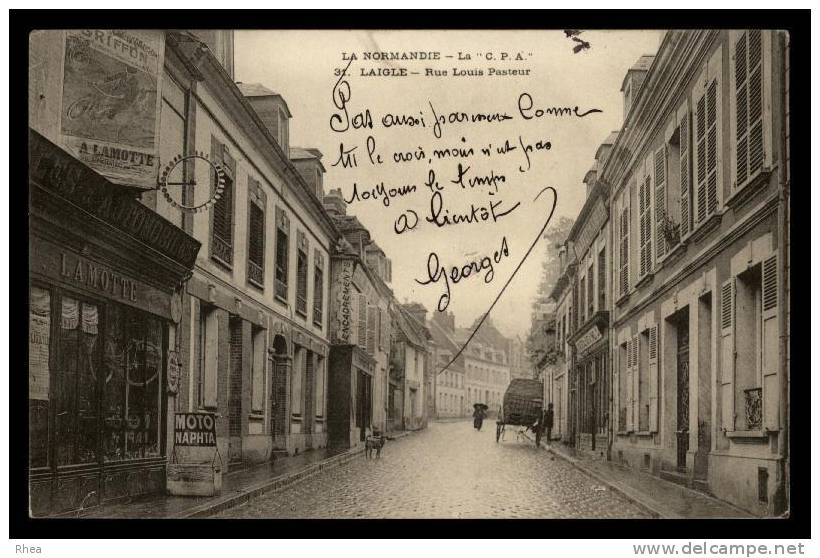 LA NORMANDIE – La "C. P. A."
31. LAIGLE – Rue Louis Pasteur
Pas aussi paresseux Comme
tu le crois, mais n'eut pas
toujours le temps
a bientôt
Georges
GRIFFON
A LAMOTTE
AUTOMOBILES
LAMOTTE
ENCADREMENTS
MOTO
NAPHTA
Rhea
www.delcampe.net